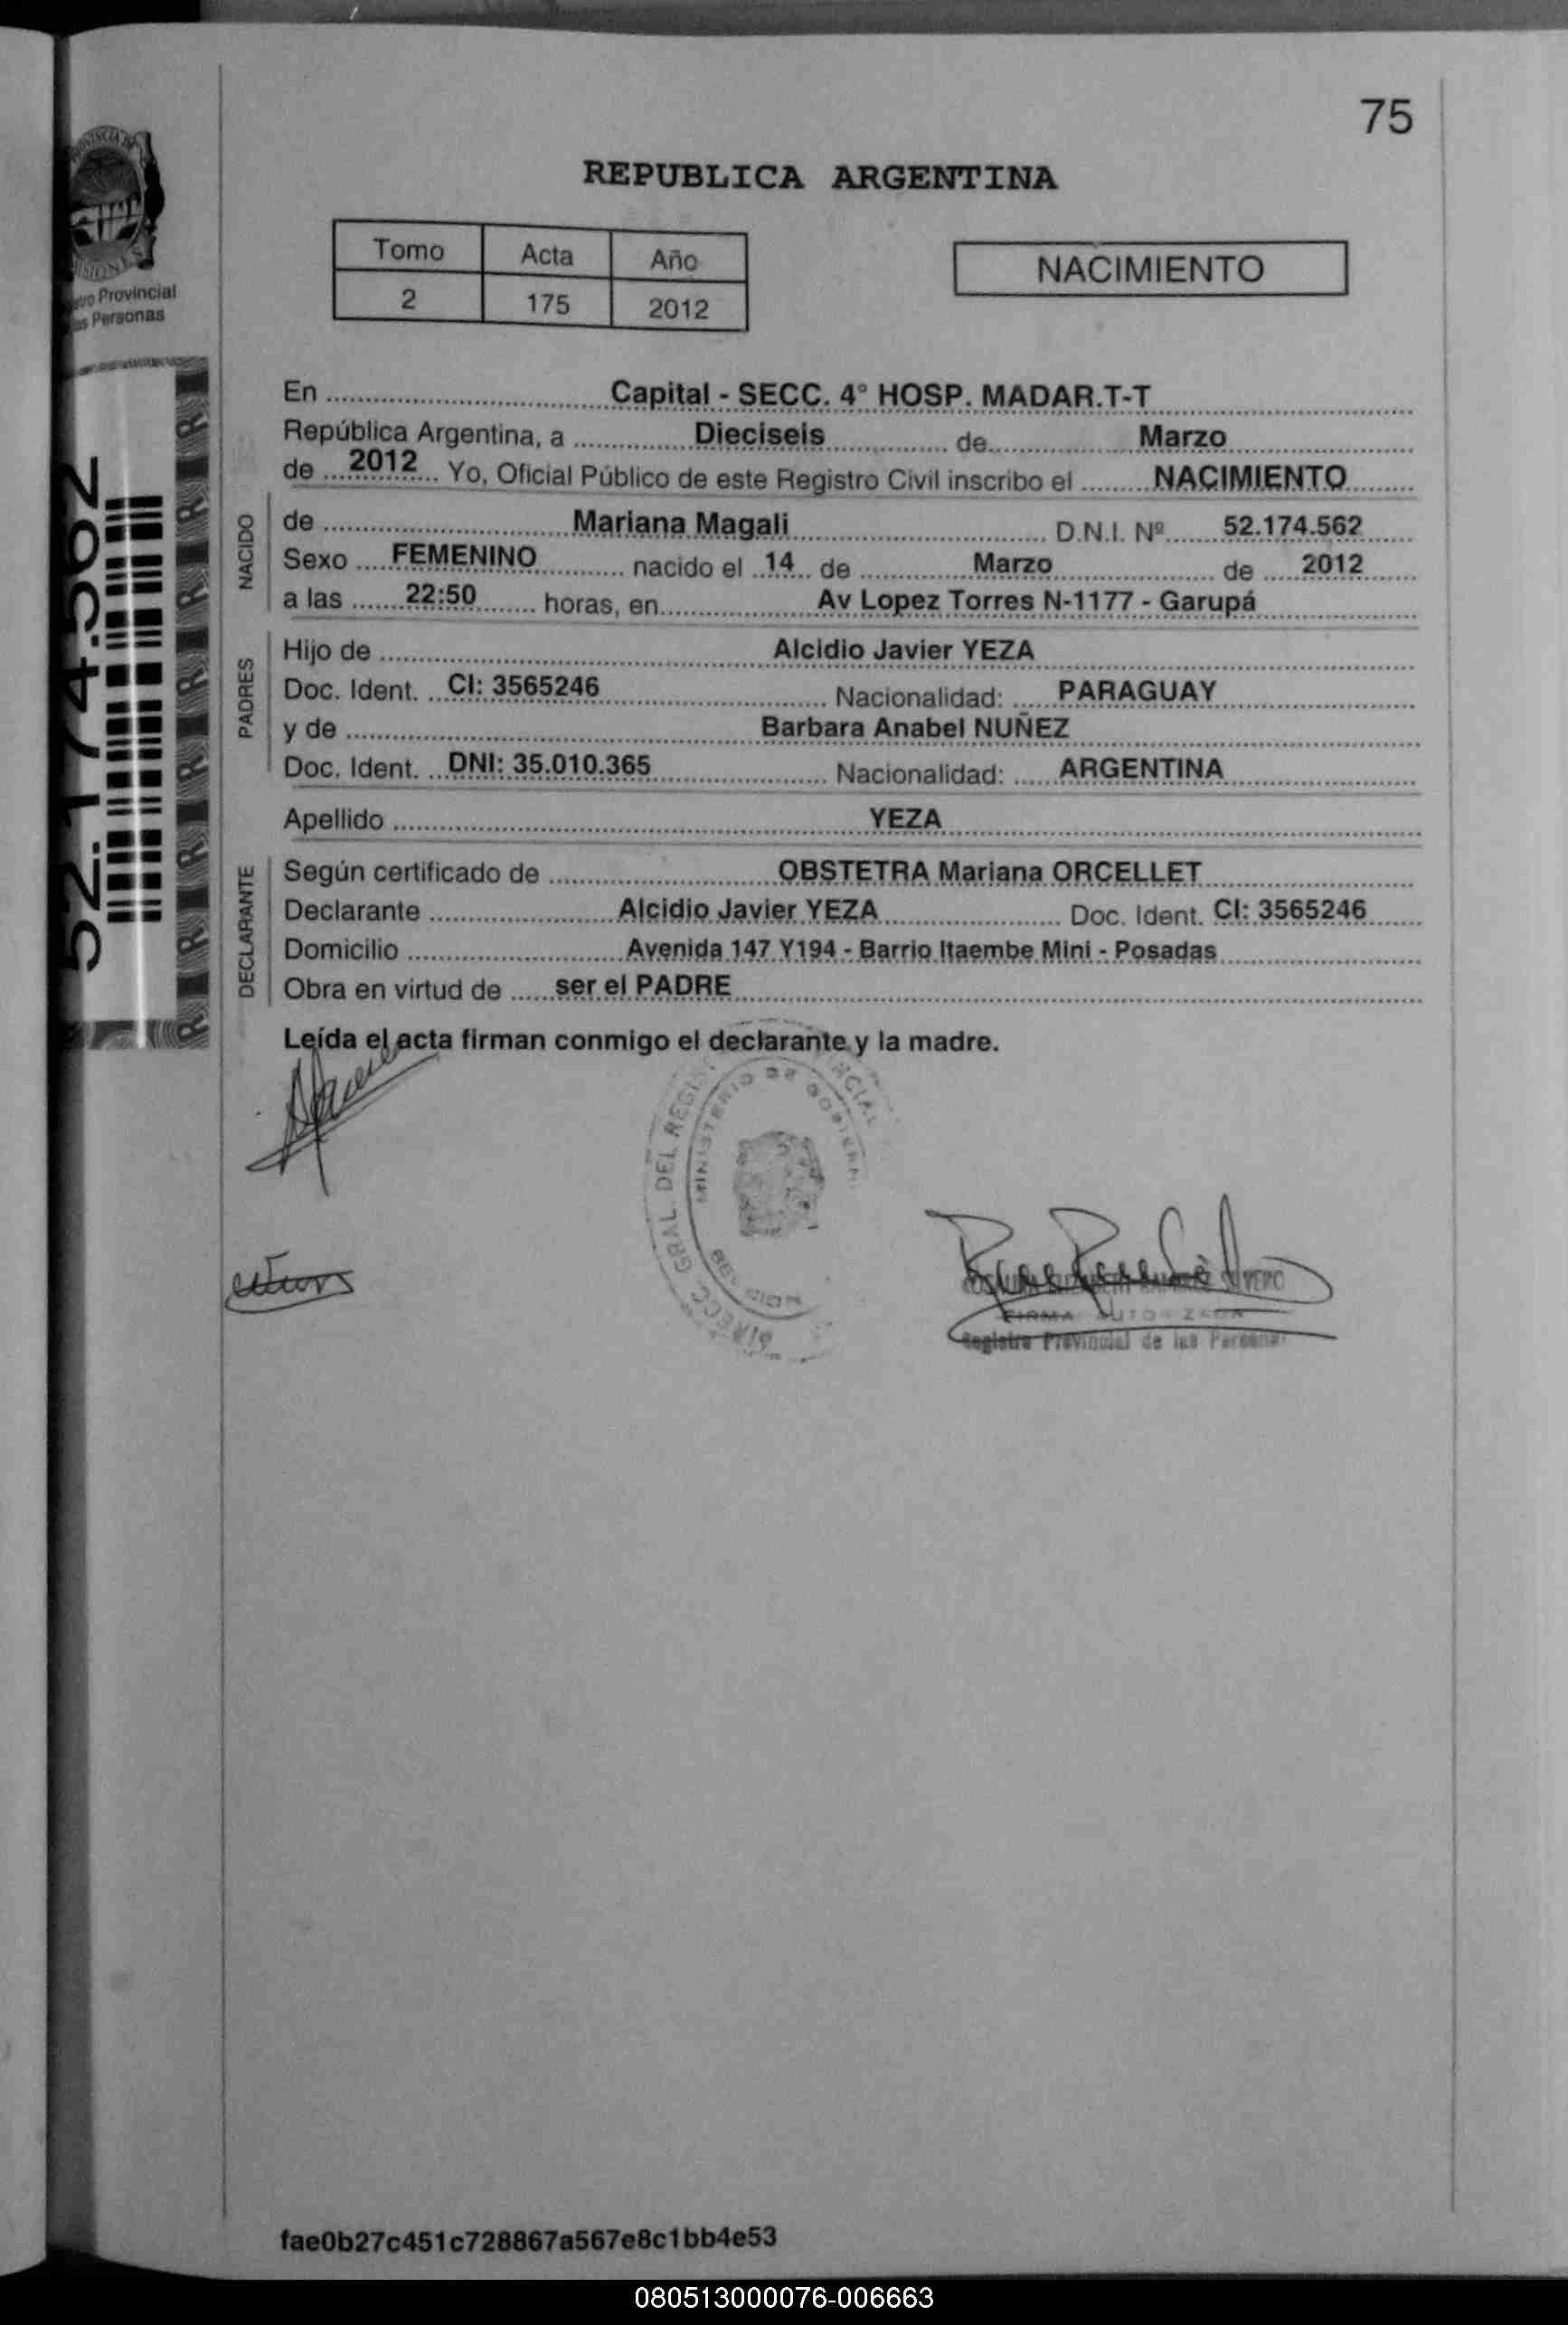 75
REPUBLICA ARGENTINA
Tomo Acta Año
2 175 2012
NACIMIENTO
Provincial
Personas
52.174.562
En Capital - SECC. 4° HOSP. MADAR.T-T
República Argentina, a Dieciseis de Marzo
de 2012 Yo, Oficial Público de este Registro Civil inscribo el NACIMIENTO
NACIDO
de Mariana Magali D.N.I. Nº 52.174.562
Sexo FEMENINO nacido el 14 de Marzo de 2012
a las 22:50 horas, en Av Lopez Torres N-1177 - Garupá
PADRES
Hijo de Alcidio Javier YEZA
Doc. Ident. CI: 3565246 Nacionalidad: PARAGUAY
y de Barbara Anabel NUÑEZ
Doc. Ident. DNI: 35.010.365 Nacionalidad: ARGENTINA
Apellido YEZA
DECLARANTE
Según certificado de OBSTETRA Mariana ORCELLET
Declarante Alcidio Javier YEZA Doc. Ident. CI: 3565246
Domicilio Avenida 147 Y194 - Barrio Itaembe Mini - Posadas
Obra en virtud de ser el PADRE
Leída el acta firman conmigo el declarante y la madre.
GRAL. DEL
MINISTERIO DE
Registro Provincial de las
fae0b27c451c728867a567e8c1bb4e53
080513000076-006663